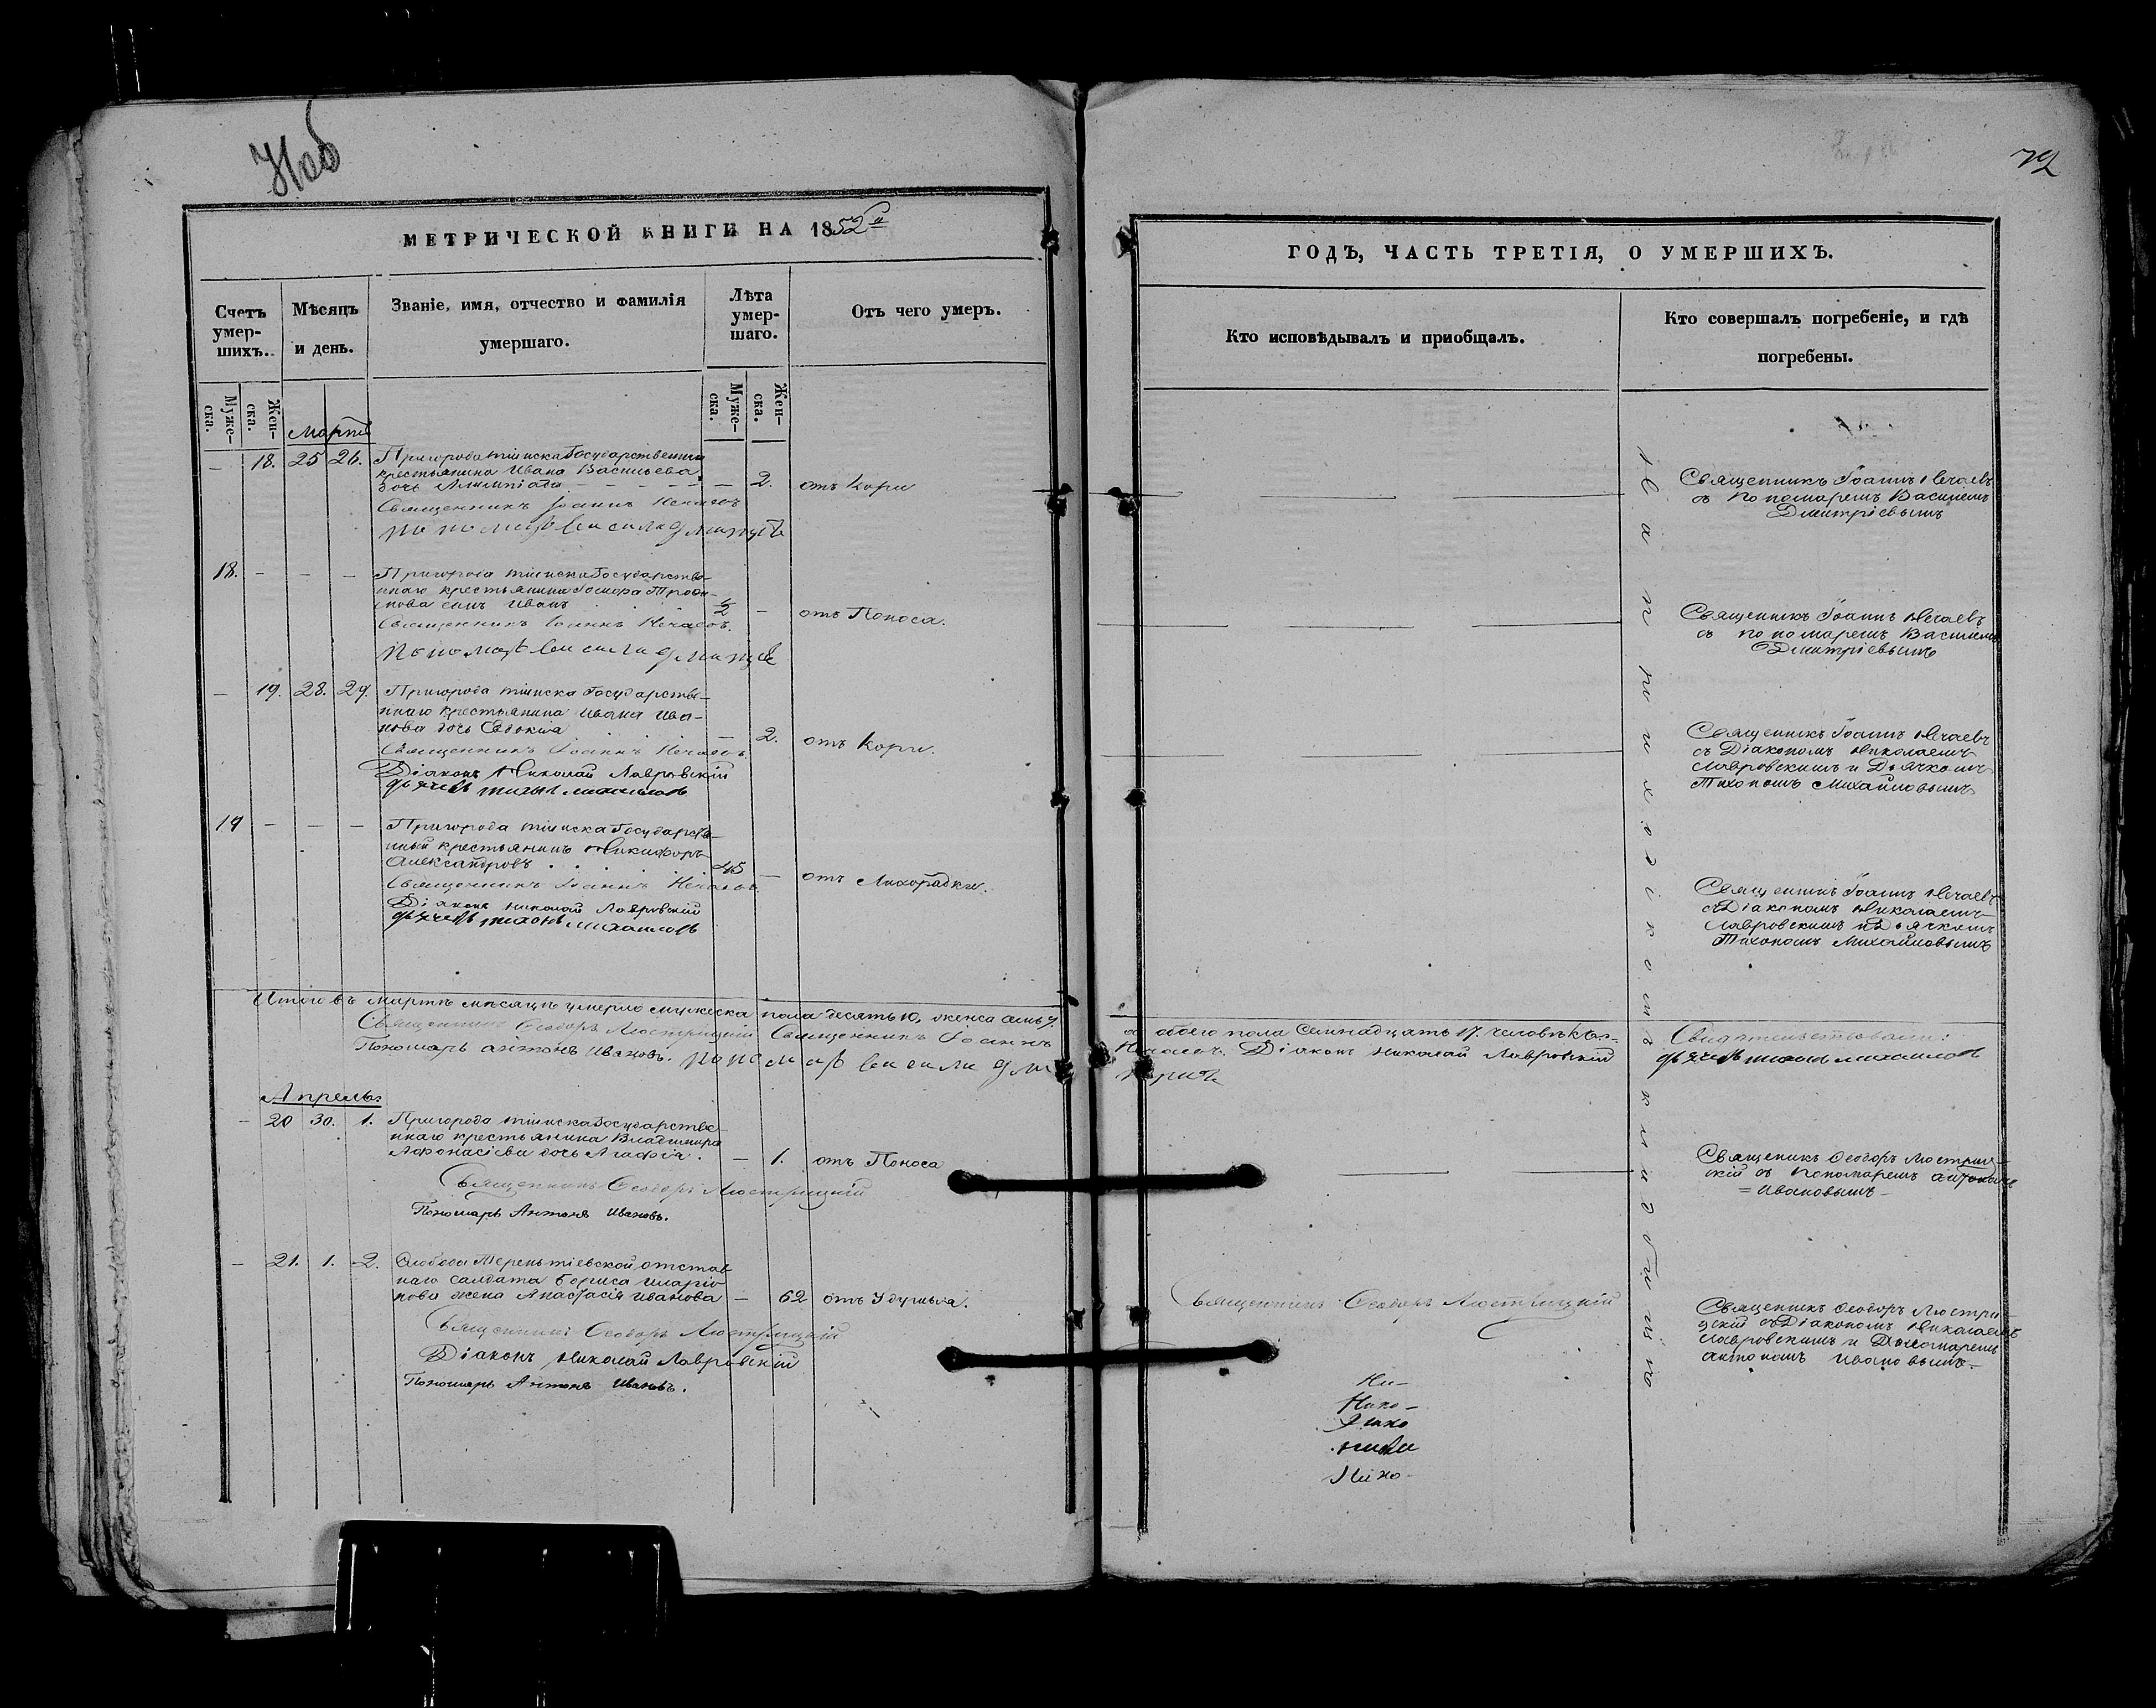 Ноб
72
МЕТРИЧЕСКОЙ КНИГИ НА 1852й
ГОДЪ, ЧАСТЬ ТРЕТІЯ, О УМЕРШИХЪ.
Счетъ умер-
шихъ.
Мѣсяцъ
и день.
Званіе, имя, отчество и фамилія
умершаго.
Лѣта
умер-
шаго.
Отъ чего умеръ.
Кто исповѣдывалъ и приобщалъ.
Кто совершалъ погребеніе, и гдѣ
погребены.
Муже-
ска.
Жен-
ска.
Муже-
ска.
Жен-
ска.
Мартъ
– 18. 25 26. Пригорода Тіинска Государственнаго
крестьянина Ивана Васильева
дочь Алимпіада – – – – – – 2. отъ Кори
Священникъ Іоаннъ Нечаевъ
Священникъ Іоаннъ Нечаевъ
съ Пономаремъ Василіемъ
Дмитріевымъ
18. – – – Пригорода Тіинска Государстве-
ннаго крестьянина
сынъ Иванъ 1/2 – отъ Поноса.
Священникъ Іоаннъ Нечаевъ.
Священникъ Іоаннъ Нечаевъ
съ пономаремъ Василіемъ
Дмитріевымъ
– 19. 28. 29. Пригорода Тіинска Государстве-
ннаго крестьянина Ивана Ива-
нова дочь Евдокія – 2. отъ Кори.
Священникъ Іоаннъ Нечаевъ
Діаконъ Николай Лавровскій
дьячекъ тихонъ михаиловъ
Священникъ Іоаннъ Нечаевъ
съ Діакономъ Николаемъ
Лавровскимъ и Дьячкомъ
Тихономъ Михайловымъ
19 – – – Пригорода Тіинска Государстве-
нный крестьянинъ Никифоръ
Александровъ . . 45 – отъ Лихорадки.
Священникъ Іоаннъ Нечаевъ.
Діаконъ Николай Лавровскій
дьячекъ тихонъ михаиловъ
Священникъ Іоаннъ Нечаевъ
съ Діакономъ Николаемъ
Лавровскимъ и Дьячкомъ
Тихономъ Михайловымъ
Итого въ мартѣ мѣсяцѣ умерло мужеска пола десять 10, женска семь 7.
а обоего пола Семнадцать 17. человѣкъ.
Свидѣтельствовали:
Священникъ Ѳеодоръ Люстрицкій Священникъ Іоаннъ
Нечаевъ. Діаконъ Николай Лавровскій
дьячекъ тихонъ михаиловъ
Пономарь Антонъ Ивановъ.
Апрель:
– 20 30. 1. Пригорода Тіинска Государстве-
ннаго крестьянина Владимира
Афонасіева дочь Агафія. – 1. отъ Поноса
Священникъ Ѳеодоръ Люстрицкій
Пономарь Антонъ Ивановъ.
Священникъ Ѳеодоръ Люстриц-
кій съ Пономаремъ Антономъ
= Ивановымъ –
– 21. 1. 2. Слободы Терентіевской отстав-
наго салдата Бориса Иларіо-
нова жена Анастасія Иванова – 62 отъ Удушья.
Священникъ Ѳеодоръ Люстрицкій
Діаконъ Николай Лавровскій
Пономарь Антонъ Ивановъ.
Священникъ Ѳеодоръ Люстрицкій
Священникъ Ѳеодоръ Люстри
цкій съ Діакономъ Николаемъ
Лавровскимъ и Пономаремъ
Антономъ Ивановымъ –
На приходскомъ кладбищѣ
Ни–
Нико–
Нико–